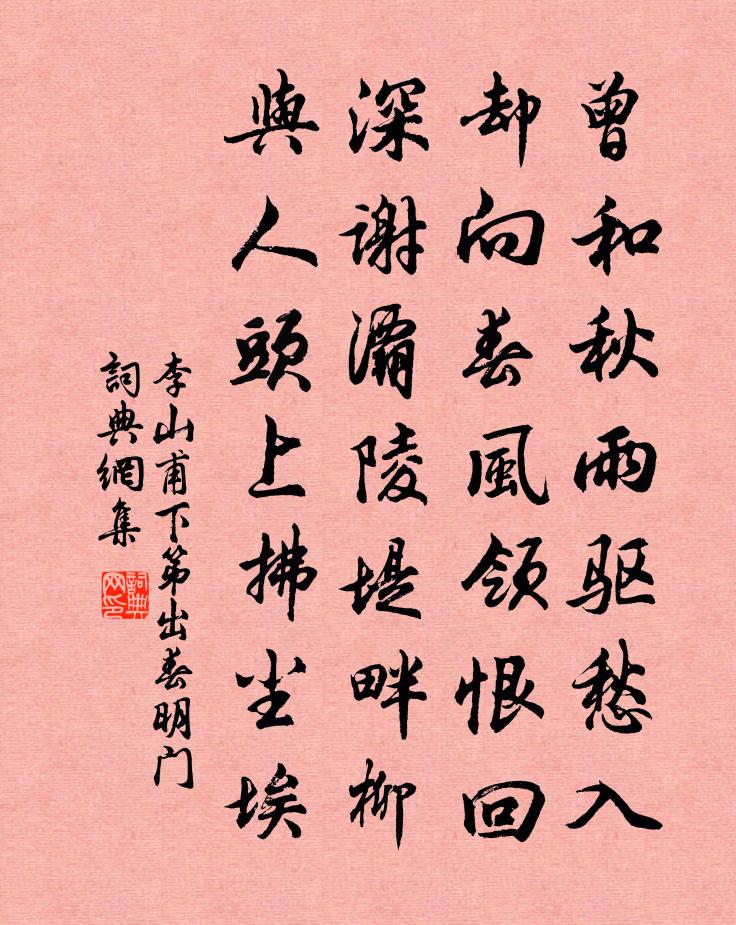 曾和秋雨驱愁入
却向春風领恨回
深谢灞陵堤畔柳
與人頭上拂尘埃
李山甫下第出春明门
詞典網集
詞典网印